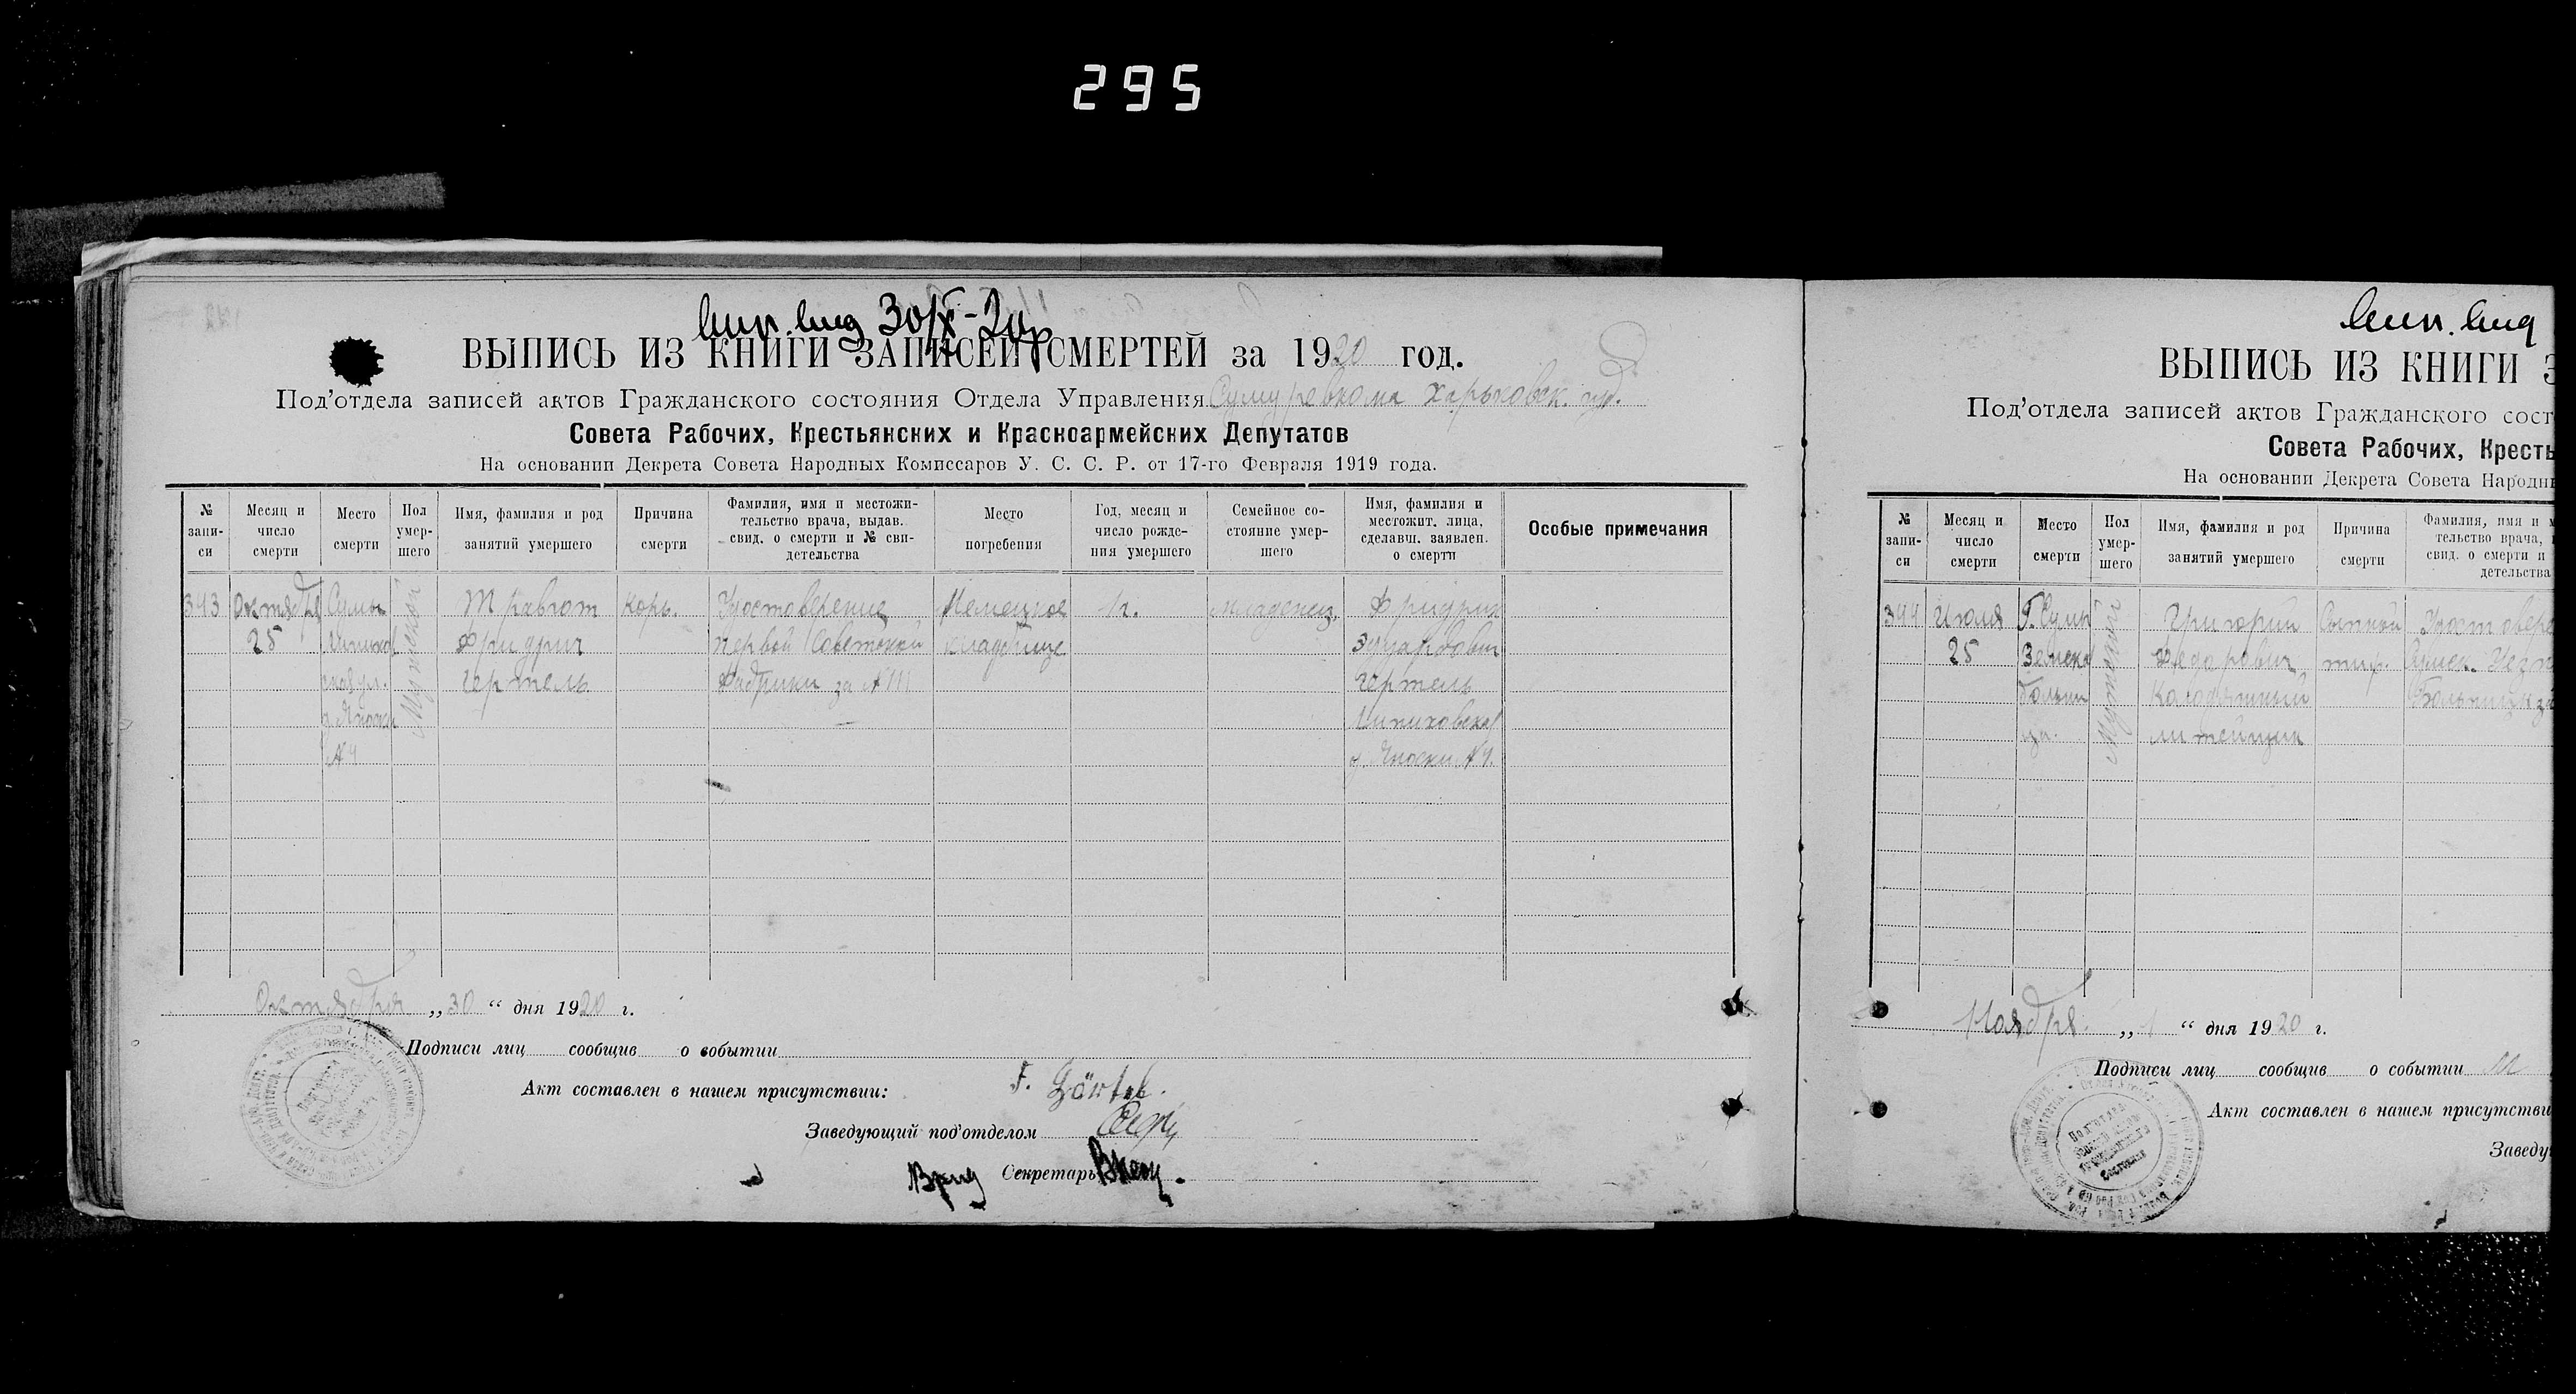 295
30/X-20 г.
ВЫПИСЬ ИЗ КНИГИ ЗАПИСЕЙ СМЕРТЕЙ за 1920 год.
Под'отдела записей актов Гражданского состояния Отдела Управления Сумуревкома Харьковск. губ.
Совета Рабочих, Крестьянских и Красноармейских Депутатов
На основании Декрета Совета Народных Комиссаров У. С. С. Р. от 17-го Февраля 1919 года.
№ запи-
си
Месяц и
число
смерти
Место
смерти
Пол
умер-
шего
Имя, фамилия и род
занятий умершего
Причина
смерти
Фамилия, имя и местожи-
тельство врача, выдав.
свид. о смерти и № сви-
детельства
Место
погребения
Год, месяц и
число рожде-
ния умершего
Семейное со-
стояние умер-
шего
Имя, фамилия и
местожит. лица,
сделавш. заявлен.
о смерти
Особые примечания
343
Октября
25
Сумы
№ 4
Мужской
Травгот
Фридрич
Гертель
Корь.
Удостоверение
первой Советской
Фабрики за №
Немецкое
кладбище
1 г.
младенец.
Фридрих
Эдуардович
Гертель
д. №4.
Октября „30“ дня 1920 г.
Подписи лиц сообщив о событии
Акт составлен в нашем присутствии:
F.
Заведующий под'отделом
Врид Секретарь
ВЫПИСЬ ИЗ КНИГИ З
Под'отдела записей актов Гражданского сост
Совета Рабочих, Кресть
На основании Декрета Совета Народн
№
запи-
си
Месяц и
число
смерти
Место
смерти
Пол
умер-
шего
Имя, фамилия и род
занятий умершего
Причина
смерти
Фамилия, имя и м
тельство врача,
свид. о смерти и
детельства
344
Июля
25
Г. Сумы
Земска
больни
ца.
Мужской
Григорий
Федорович
литейщик
Сыпной
тиф.
Удостовере
Ноября „1“ дня 1920 г.
Подписи лиц сообщив о событии
Акт составлен в нашем присутстви
Заведу